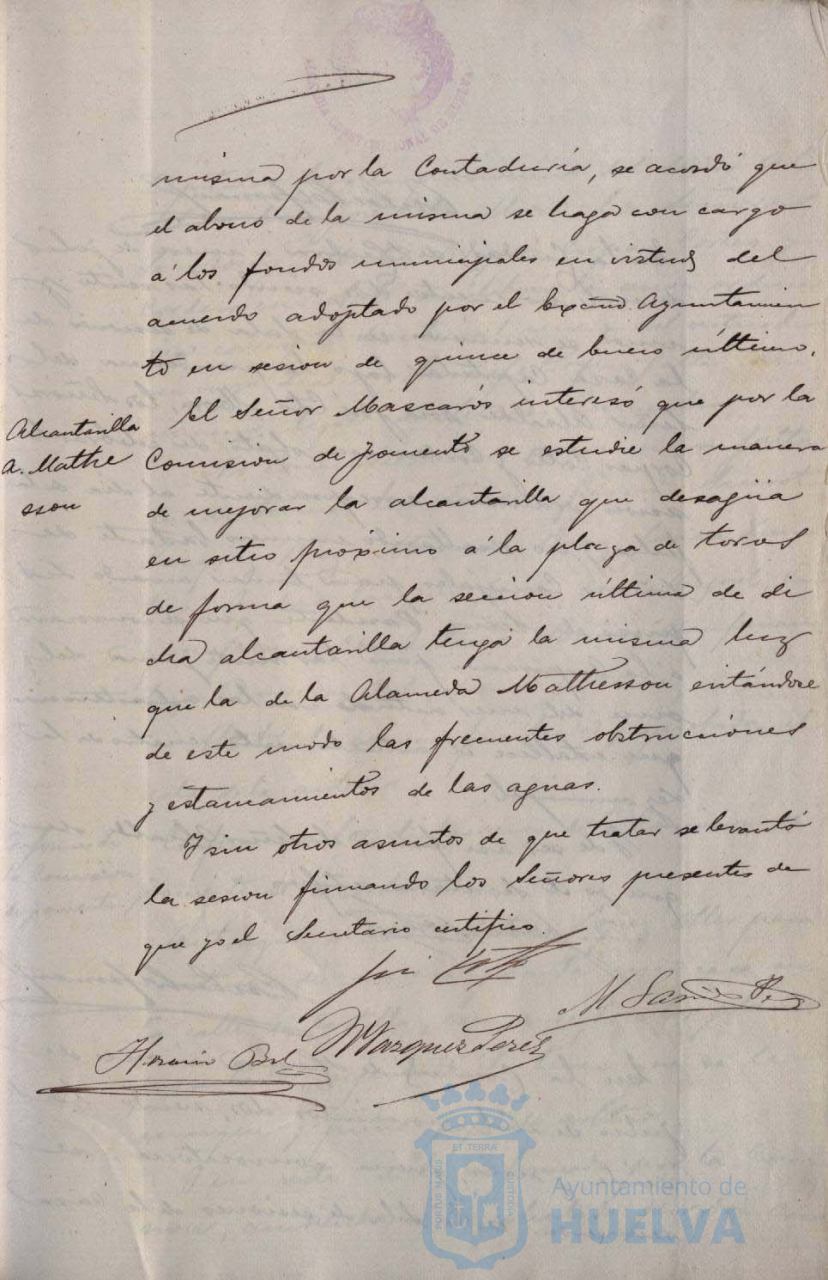 misma por la Contaduría, se acordó que
el abono de la misma se haga con cargo
á los fondos municipales en virtud del
acuerdo adoptado por el Excmo Ayuntamien
to en sesion de quince de Enero último.
Alcantarilla
A. Mathe
sson
El Señor Mascarós interesó que por la
Comision de Fomento se estudie la manera
de mejorar la alcantarilla que desagüa
en sitio próximo á la plaza de toros
de forma que la seccion última de di
cha alcantarilla tenga la misma luz
que la de la Alameda Mathesson evitándose
de este modo las frecuentes obstrucciones
y estancamientos de las aguas.
Y sin otros asuntos de que tratar se levantó
la sesion firmando los Señores presentes de
que yo el Secretario certifico.
M Vazquez Perez
PORTUS MARIS ET TERRÆ CUSTODIA
Ayuntamiento de
HUELVA